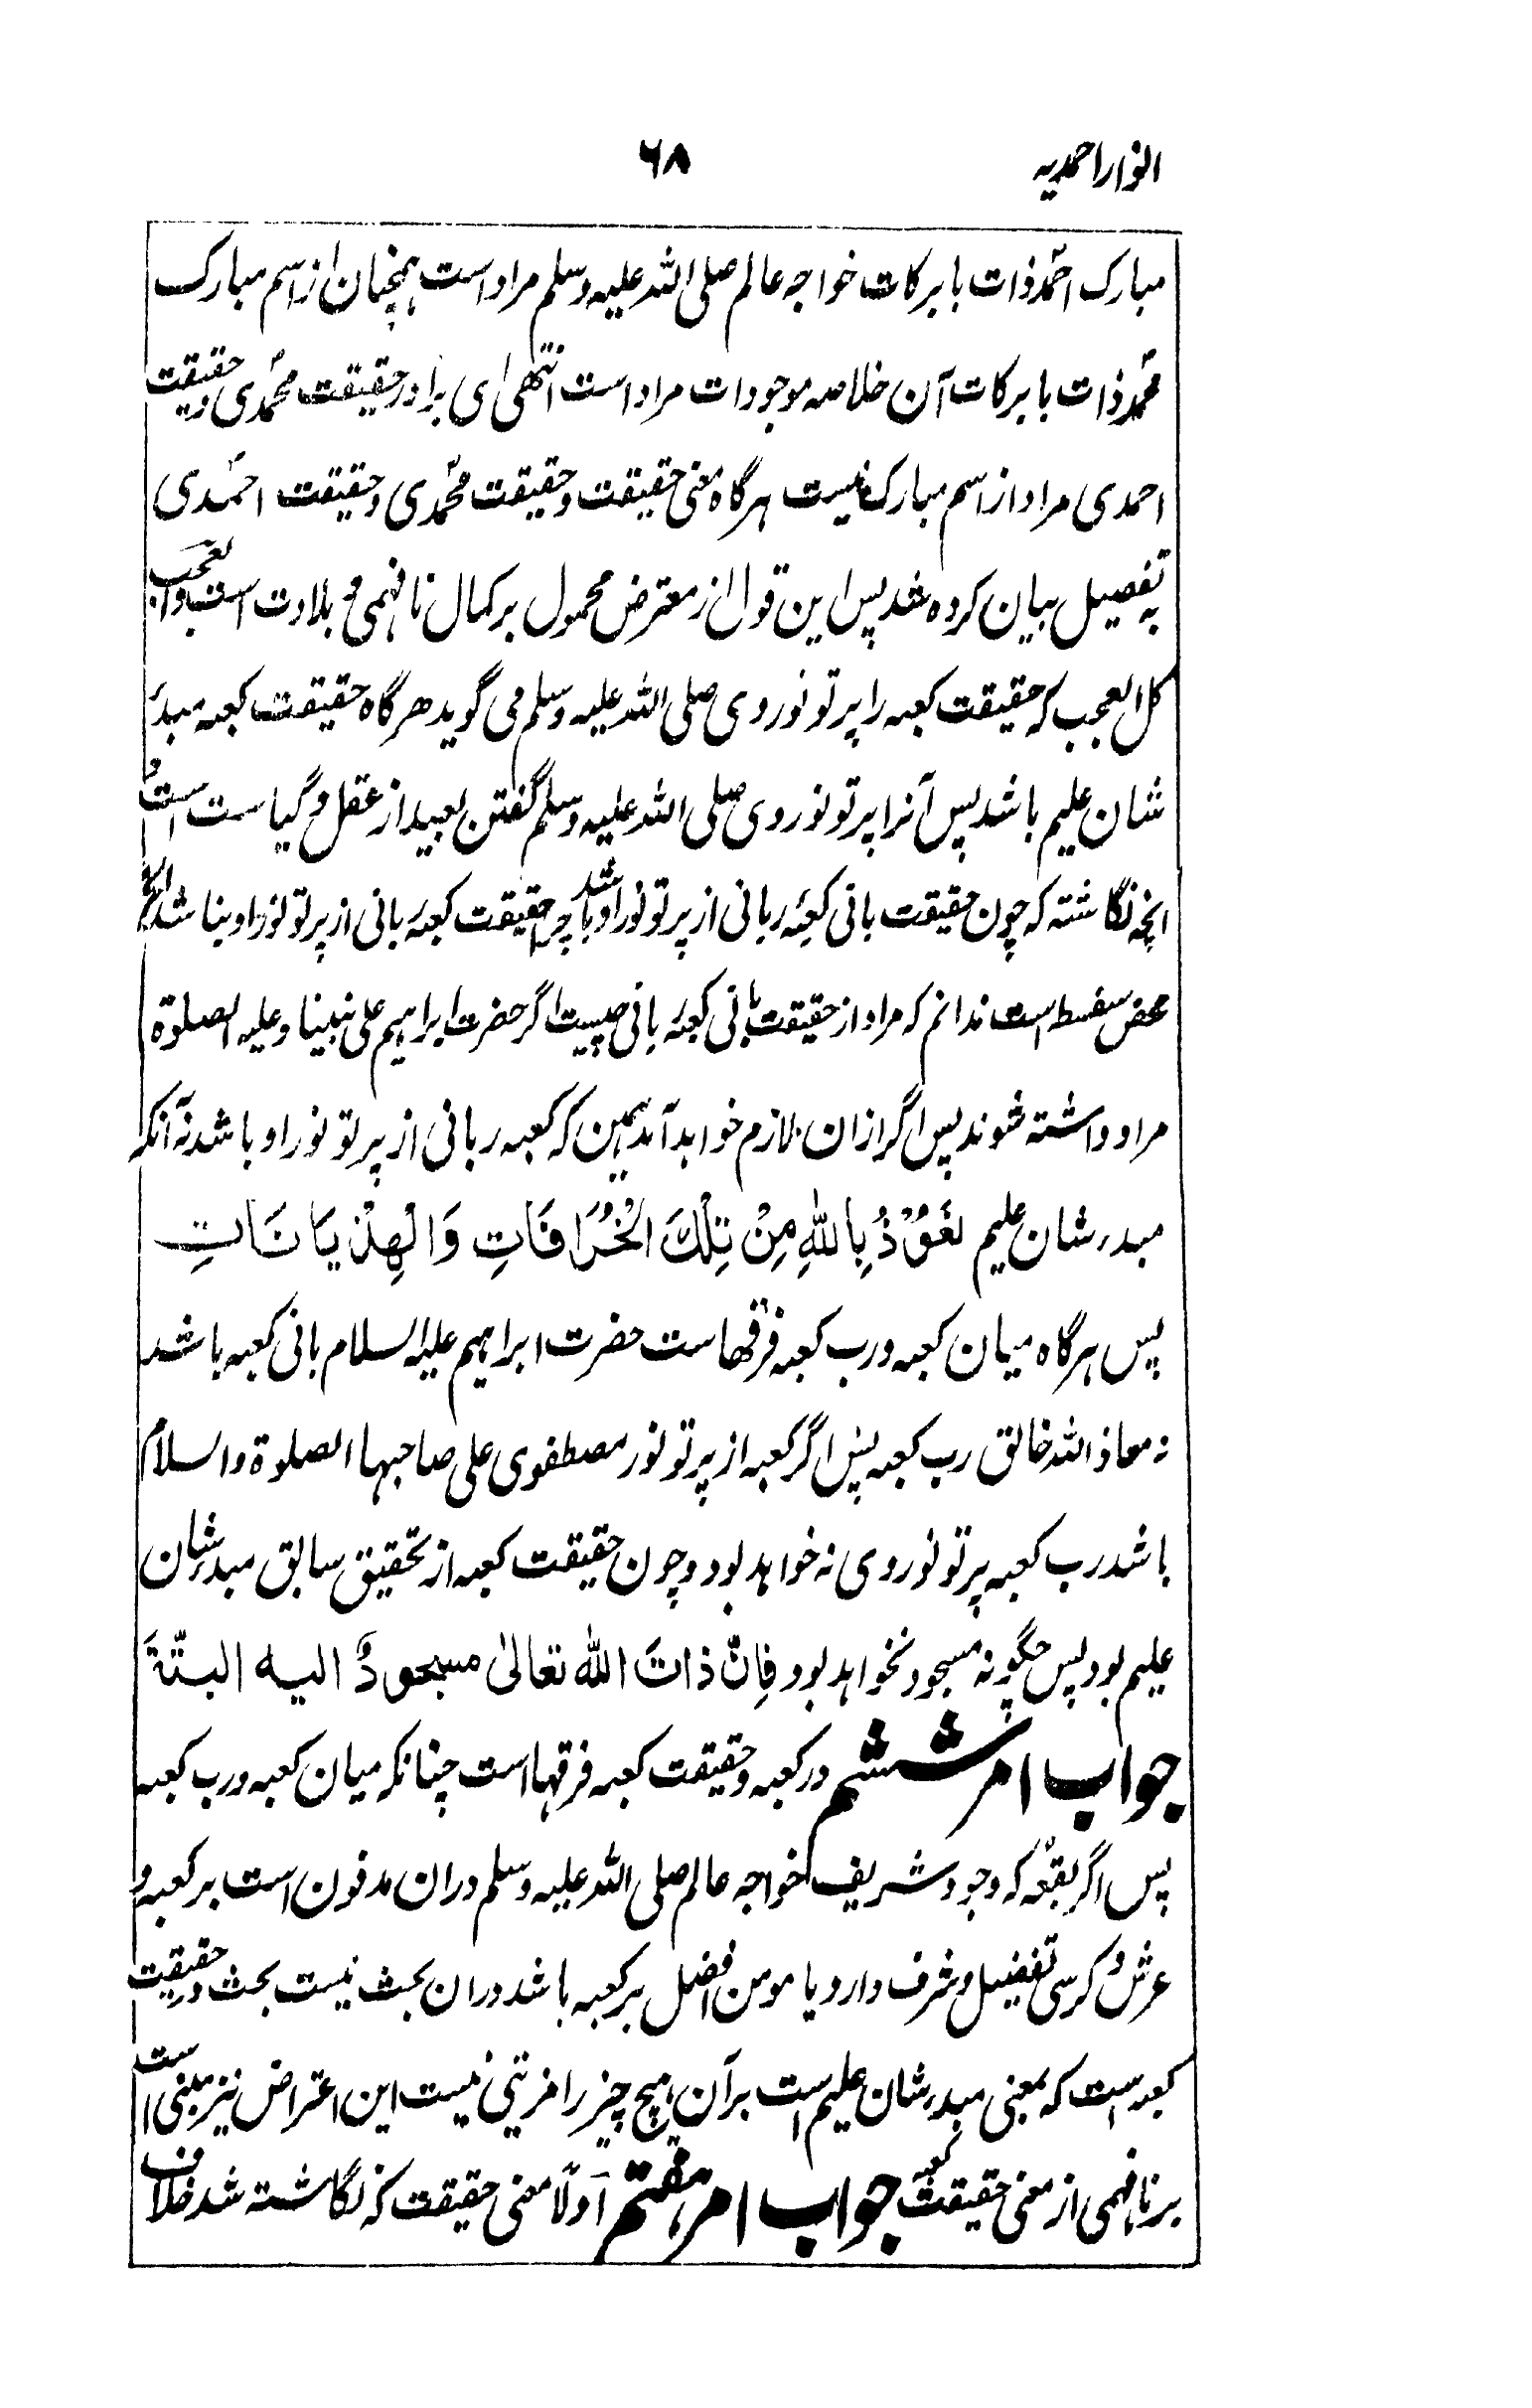 انوار احمدیہ ۶۸
مبارک احمدؐ ذات بابرکات خواجہ عالم صلی اللہ علیہ وسلم مراد است ہمچنان از اسم مبارک
محمدؐ ذات بابرکات آن خلاصہ موجودات مراد است انتھی ای برادر حقیقت محمدؐی و حقیقت
احمدی مراد از اسم مبارک نیست ہرگاہ معنی حقیقت و حقیقت محمدؐی و حقیقت احمدؐی
بہ تفصیل بیان کردہ شد پس این قول از معترض محمول بر کمال نافہمی و بلادت است و العجب
کل العجب کہ حقیقت کعبہ را پرتو نور وی صلی اللہ علیہ وسلم می گوید ھرگاہ حقیقت کعبہ مبدء
شان علیم باشد پس آنرا پرتو نور وی صلی اللہ علیہ وسلم گفتن بعید از عقل و کیاست است و
انچہ نگاشتہ کہ چون حقیقت بانی کعبۂ ربانی از پرتو نور او باشد چرا حقیقت کعبۂ ربانی از پرتو نور او بنا شد الخ
محض سفسطہ است ندانم کہ مراد از حقیقت بانی کعبۂ ربانی چیست اگر حضرت ابراہیم علی نبینا و علیہ الصلوۃ
مراد داشتہ شوند پس اگر ازان لازم خواہد آمد ہمین کہ کعبہ ربانی از پرتو نور او باشد نہ آنکہ
مبدء شان علیم نَعُوْذُ بِاللّٰہِ مِنْ تِلْكَ الْخُرَافَاتِ وَالْهِذْيَانَاتِ
پس ہرگاہ میان کعبہ و رب کعبہ فرقہاست حضرت ابراہیم علیہ السلام بانی کعبہ باشد
نہ معاذ اللہ خالق رب کعبہ پس اگر کعبہ از پرتو نور مصطفوی علی صاحبہا الصلوۃ والسلام
باشد رب کعبہ پرتو نور وی نہ خواہد بود و چون حقیقت کعبہ از تحقیق سابق مبدء شان
علیم بود پس چگونہ مسجود نخواہد بود فِانَّ ذاتَ اللہ تعالیٰ مسجودٌ الیہ البتّةَ
جواب امر ششم در کعبہ و حقیقت کعبہ فرقہا است چنانکہ میان کعبہ و رب کعبہ
پس اگر بقعہ کہ وجود شریف خواجہ عالم صلی اللہ علیہ وسلم دران مدفون است بر کعبہ و
عرش و کرسی تفضیل و شرف دارد یا مومن افضل بر کعبہ باشد دران بحث نیست بحث در حقیقت
کعبہ است کہ بمعنی مبدء شان علیم است برآن ہیچ چیز را مزیتی نیست این اعتراض نیز مبنی است
بر نافہمی از معنی حقیقت کعبہ جواب امر ہفتم اولاً معنی حقیقت کہ نگاشتہ شد خلاف